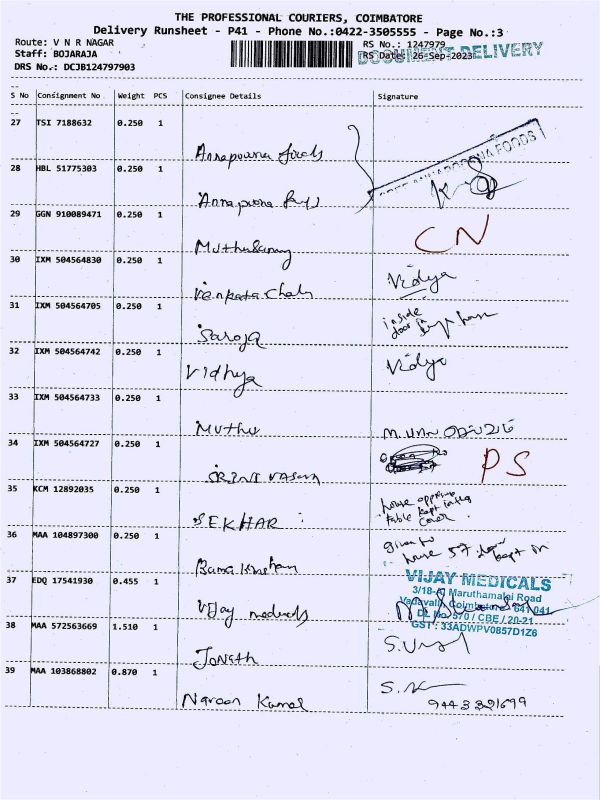 THE PROFESSIONAL COURIERS, COIMBATORE
Delivery Runsheet - P41 - Phone No.:0422-3505555 - Page No.:3
Route: V N R NAGAR
RS No.: 1247979
Staff: BOJARAJA
RS Date: 26-Sep-2023
DOCUMENT DELIVERY
DRS No.: DCJB124797903
S No Consignment No Weight PCS Consignee Details Signature
27 TSI 7188632 0.250 1
Annapoorna foods
ANNAPOORNA FOODS
28 HBL 51775303 0.250 1
Annapoorna
29 GGN 910089471 0.250 1
Muthusamy CN
30 IXM 504564830 0.250 1
Venkatachalam Vidya
31 IXM 504564705 0.250 1
Saroja inside door in
32 IXM 504564742 0.250 1
Vidhya Vidya
33 IXM 504564733 0.250 1
Muthu
34 IXM 504564727 0.250 1
SRINIVASAN PS
35 KCM 12892035 0.250 1
SEKHAR house opposite table kept
36 MAA 104897300 0.250 1
given to house 57 door kept in
37 EDQ 17541930 0.455 1
Vijay medicals
VIJAY MEDICALS
3/18-A, Maruthamalai Road
Vadavalli, Coimbatore - 641 041
DL No: 570 / CBE / 20-21
GST : 33ADWPV0857D1Z6
38 MAA 572563669 1.510 1
39 MAA 103868802 0.870 1
Naveen Kumar
9443321699